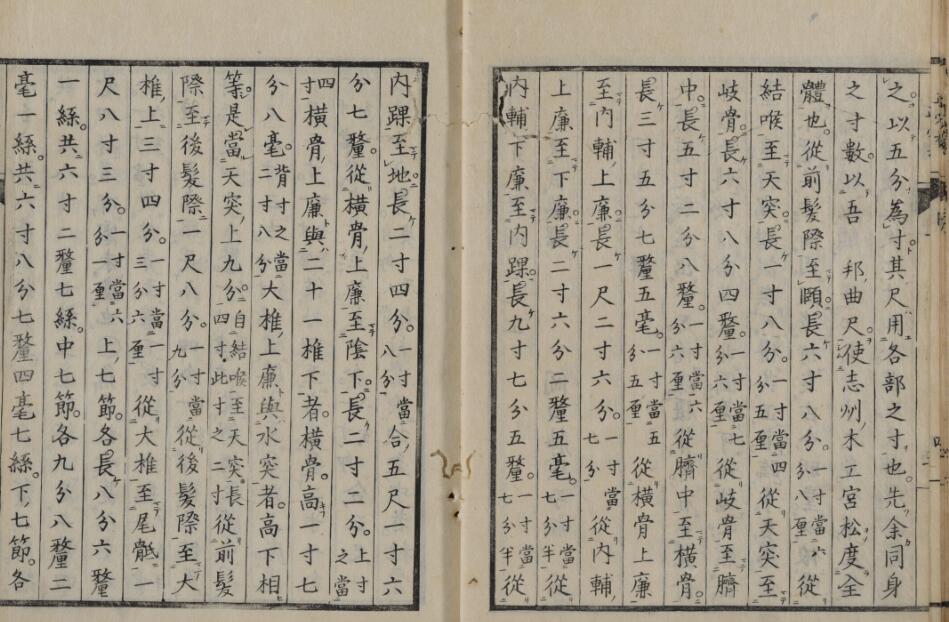 之以五分為寸其尺用各部之寸也先余同身
之寸數以吾邦曲尺使志州木工宮松度全
體也從前髮際至頤長六寸八分一寸當六分八厘從
結喉至天突長一寸八分一寸當四分五厘從天突至
岐骨長六寸八分四釐一寸當七分六厘從岐骨至臍
中長五寸二分八釐一寸當六分六厘從臍中至橫骨
長三寸五分七釐五毫一寸當五分五厘從橫骨上廉
至內輔上廉長一尺二寸六分一寸當七分從內輔
上廉至下廉長二寸六分二釐五毫一寸當七分半從
內輔下廉至內踝長九寸七分五釐一寸當七分半從
內踝至地長二寸四分一寸當八分合五尺一寸六
分七釐從橫骨上廉至陰下長二寸二分上寸之當
四寸橫骨上廉與二十一椎下者橫骨高一寸七
分八毫背寸之當二寸八分大椎上廉與水突者高下相
等是當天突上九分自結喉至天突長四寸此寸之二寸從前髮
際至後髮際一尺八分一寸當九分從後髮際至大
椎上三寸四分一寸當一寸三分六厘從大椎至尾骶一
尺八寸三分一寸當六分一厘上七節各長八分六釐
一絲共六寸二釐七絲中七節各九分八釐二
毫一絲共六寸八分七釐四毫七絲下七節各